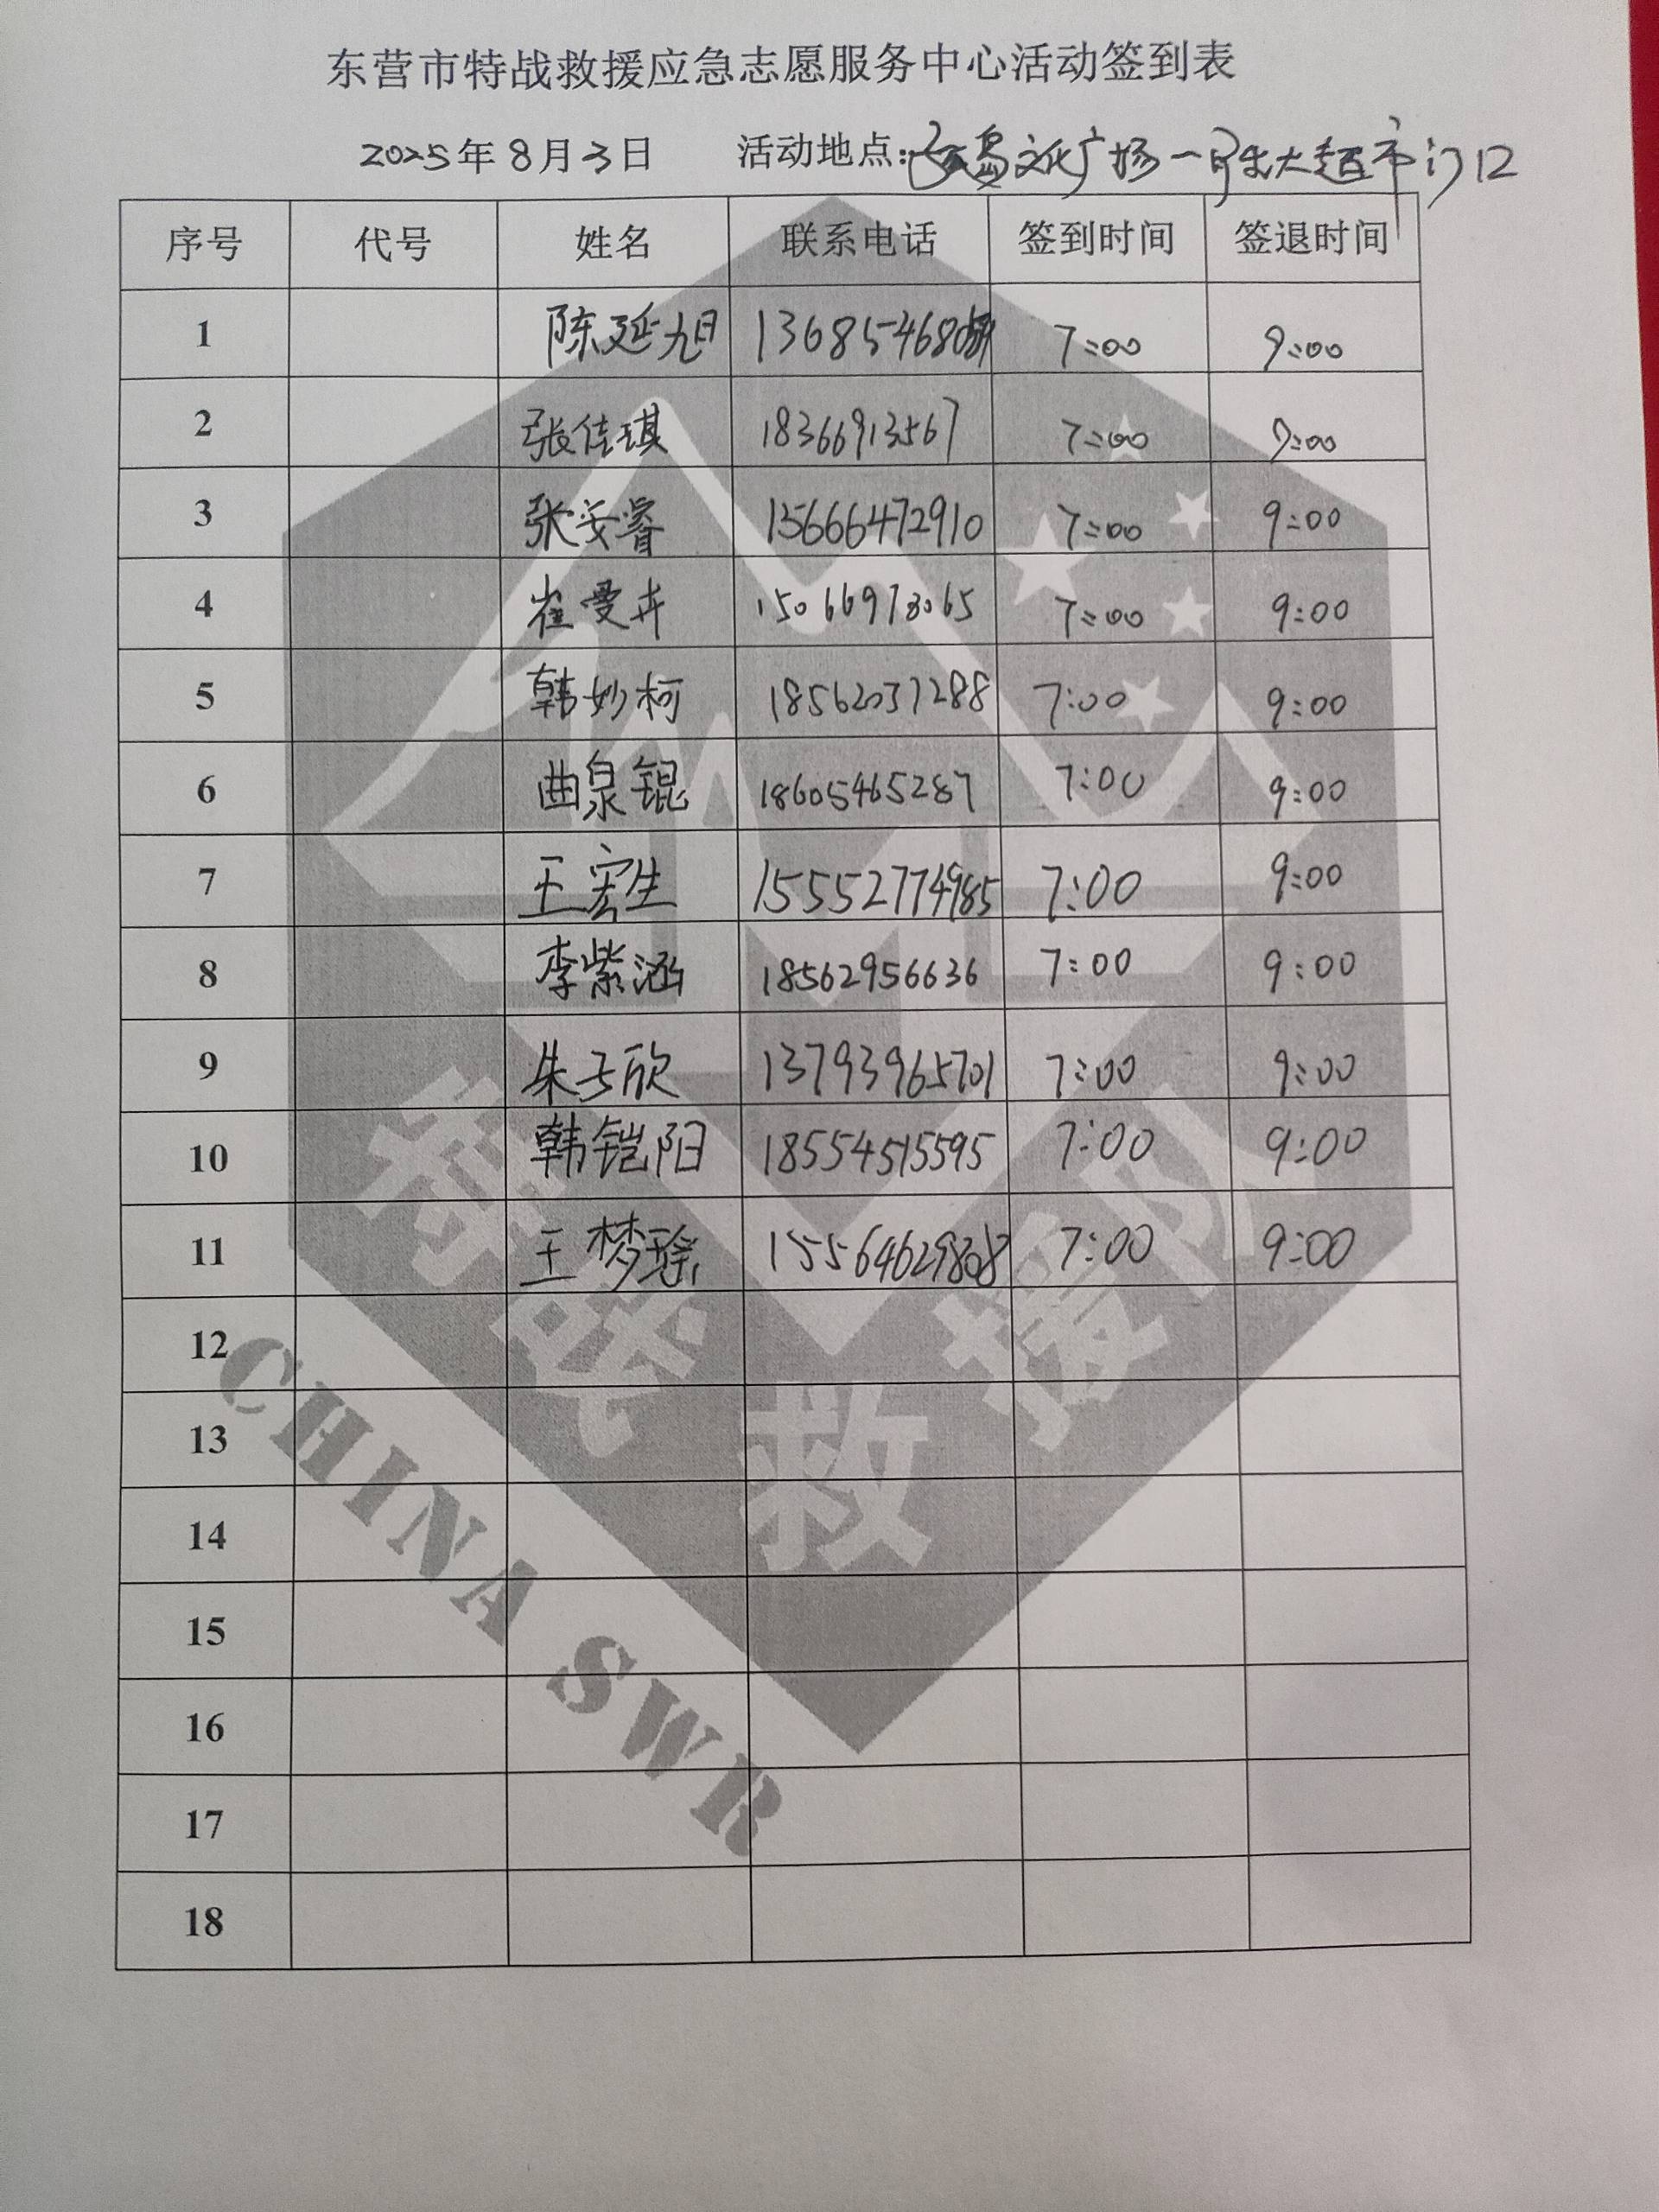 东营市特战救援应急志愿服务中心活动签到表
2025年8月3日 活动地点:文化广场一大超市门口
序号 代号 姓名 联系电话 签到时间 签退时间
1 陈延旭 7:00 9:00
2 张佳琪 18366913567 7:00 9:00
3 张安睿 13666472910 7:00 9:00
4 崔曼卉 15066973065 7:00 9:00
5 韩妙柯 18562037288 7:00 9:00
6 曲泉锟 18605465287 7:00 9:00
7 王宏生 15552774985 7:00 9:00
8 李紫涵 18562956636 7:00 9:00
9 朱子欣 13793965701 7:00 9:00
10 韩铠阳 18554515595 7:00 9:00
11 王梦瑶 15564629808 7:00 9:00
12
13
14
15
16
17
18
特战救援队
CHINA SWR